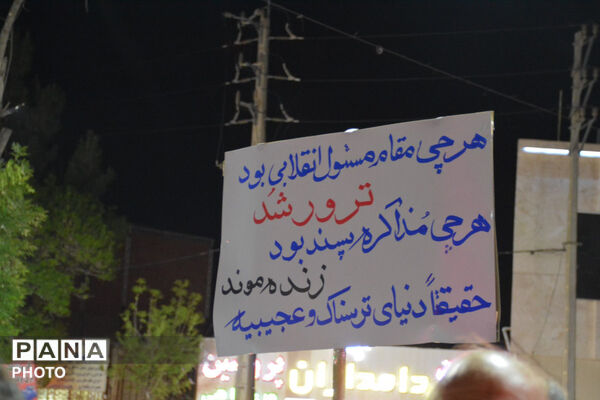 هرچی مقام مسئول انقلابی بود
ترور شد
هرچی مُذاکره پسند بود
زنده موند
حقیقتاً دنیای ترسناک و عجیبیه
دامداران
PANA
PHOTO